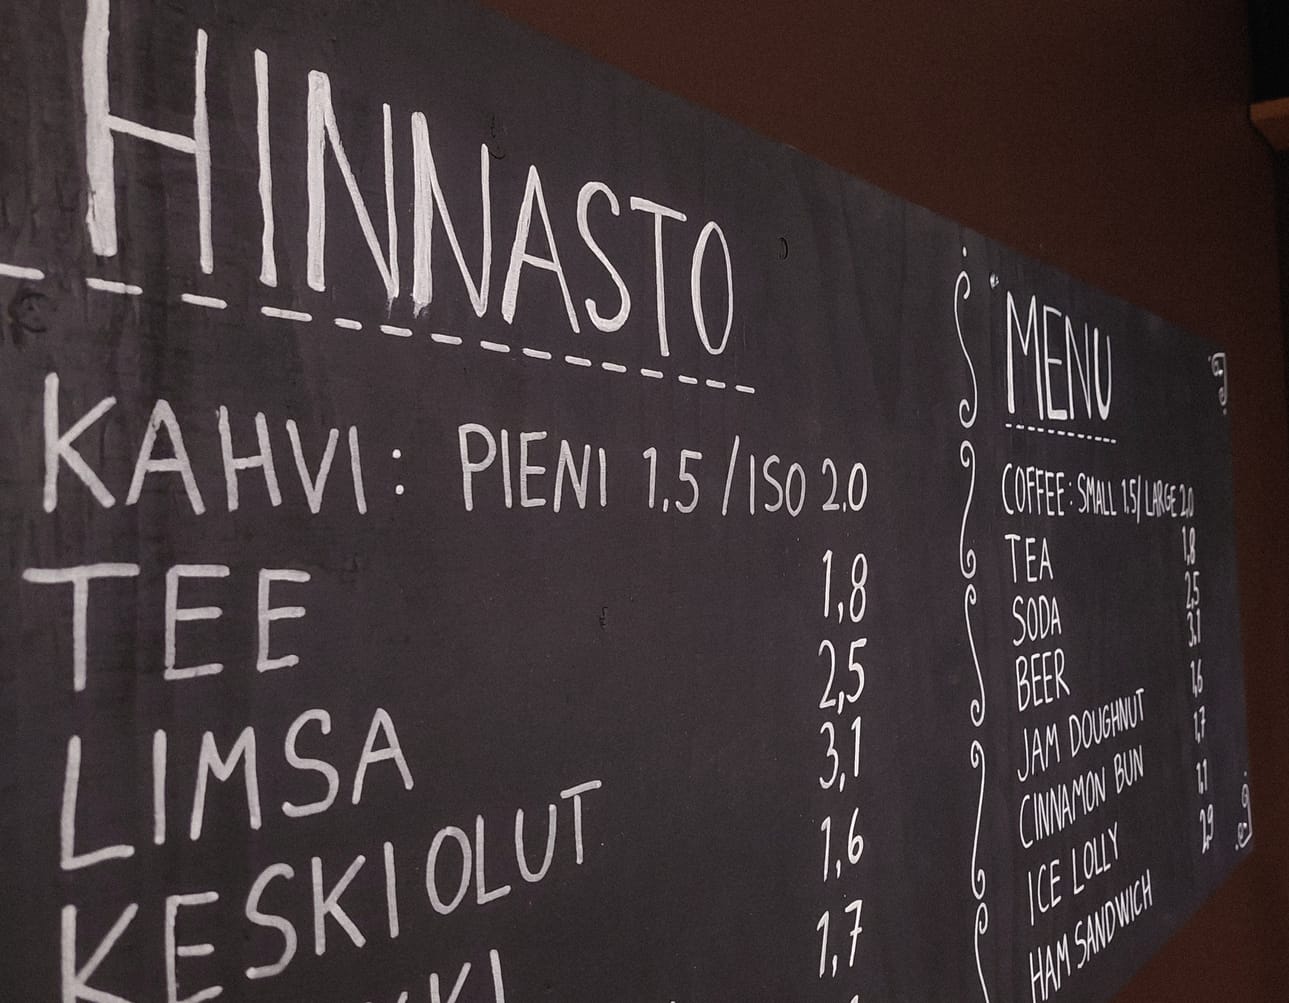 HINNASTO
KAHVI: PIENI 1.5 / ISO 2.0
TEE 1,8
LIMSA 2,5
KESKIOLUT 3,1
1,6
1,7
MENU
COFFEE: SMALL 1.5/ LARGE 2.0
TEA 1,8
SODA 2,5
BEER 3,1
JAM DOUGHNUT 1,6
CINNAMON BUN 1,7
ICE LOLLY 1,1
HAM SANDWICH 2,9